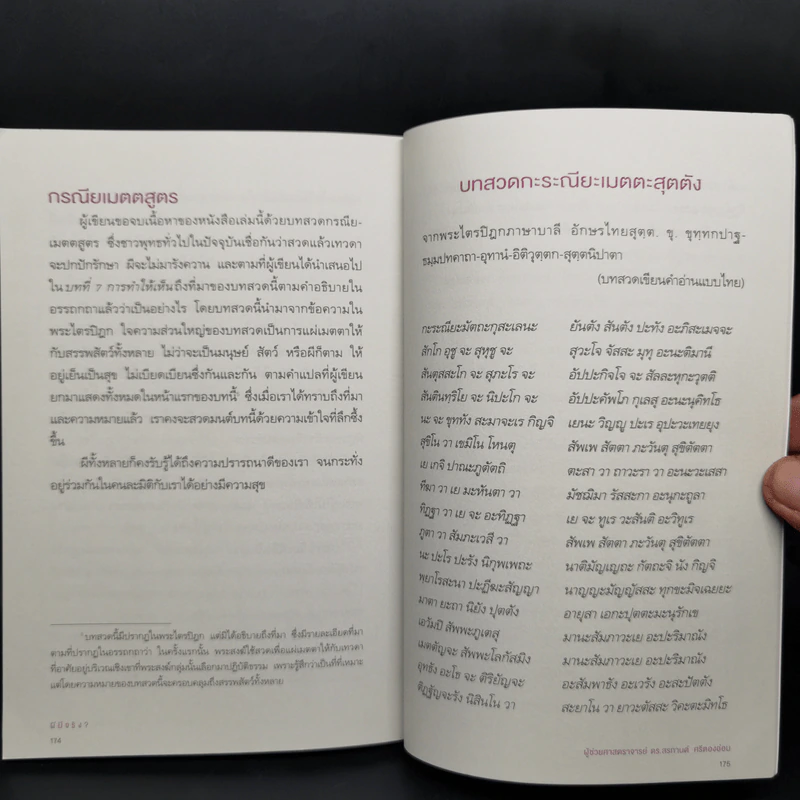 กรณียเมตตสูตร
ผู้เขียนขอจบเนื้อหาของหนังสือเล่มนี้ด้วยบทสวดกรณีย-
เมตตสูตร ซึ่งชาวพุทธทั่วไปในปัจจุบันเชื่อกันว่าสวดแล้วเทวดา
จะปกปักรักษา ผีจะไม่มารังควาน และตามที่ผู้เขียนได้นำเสนอไป
ใน บทที่ 7 การทำให้เห็นถึงที่มาของบทสวดนี้ตามคำอธิบายใน
อรรถกถาแล้วว่าเป็นอย่างไร โดยบทสวดนี้นำมาจากข้อความใน
พระไตรปิฎก ใจความส่วนใหญ่ของบทสวดเป็นการแผ่เมตตาให้
กับสรรพสัตว์ทั้งหลาย ไม่ว่าจะเป็นมนุษย์ สัตว์ หรือผีก็ตาม ให้
อยู่เย็นเป็นสุข ไม่เบียดเบียนซึ่งกันและกัน ตามคำแปลที่ผู้เขียน
ยกมาแสดงทั้งหมดในหน้าแรกของบทนี้¹ ซึ่งเมื่อเราได้ทราบถึงที่มา
และความหมายแล้ว เราคงจะสวดมนต์บทนี้ด้วยความเข้าใจที่ลึกซึ้ง
ขึ้น
ผีทั้งหลายก็คงรับรู้ได้ถึงความปรารถนาดีของเรา จนกระทั่ง
อยู่ร่วมกันในคนละมิติกับเราได้อย่างมีความสุข
¹ บทสวดนี้มีปรากฏในพระไตรปิฎก แต่มิได้อธิบายถึงที่มา ซึ่งมีรายละเอียดที่มา
ตามที่ปรากฏในอรรถกถาว่า ในครั้งแรกนั้น พระสงฆ์ใช้สวดเพื่อแผ่เมตตาให้กับเทวดา
ที่อาศัยอยู่บริเวณเชิงเขาที่พระสงฆ์กลุ่มนั้นเลือกมาปฏิบัติธรรม เพราะรู้สึกว่าเป็นที่ที่เหมาะ
แต่โดยความหมายของบทสวดนี้จะครอบคลุมถึงสรรพสัตว์ทั้งหลาย
ผีมีจริงไ
174
บทสวดกะระณียะเมตตะสุตตัง
จากพระไตรปิฎกภาษาบาลี อักษรไทยสุตต. ขุ. ขุททกปาฐ-
ธมมปทคาถา-อุทานํ-อิติวุตตก-สุตตนิปาตา
(บทสวดเขียนคำอ่านแบบไทย)
กะระณียะมัตถะกุสะเลนะ ยันตัง สันตัง ปะทัง อะภิสะเมจจะ
สักโก อุชู จะ สุหุชู จะ สุวะโจ จัสสะ มุทุ อะนะติมานี
สันตุสสะโก จะ สุภะโร จะ อัปปะกิจโจ จะ สัลละหุกะวุตติ
สันตินทฺริโย จะ นิปะโก จะ อัปปะคัพโภ กุเลสุ อะนะนุคิทโธ
นะ จะ ขุททัง สะมาจะเร กิญจิ เยนะ วิญญู ปะเร อุปะวะเทยยุง
สุขิโน วา เขมิโน โหนตุ สัพเพ สัตตา ภะวันตุ สุขิตัตตา
เย เกจิ ปาณะภูตัตถิ ตะสา วา ถาวะรา วา อะนะวะเสสา
ทีฆา วา เย มะหันตา วา มัชฌิมา รัสสะกา อะนุกะถูลา
ทิฏฐา วา เย จะ อะทิฏฐา เย จะ ทูเร วะสันติ อะวิทูเร
ภูตา วา สัมภะเวสี วา สัพเพ สัตตา ภะวันตุ สุขิตัตตา
นะ ปะโร ปะรัง นิกุพเพถะ นาติมัญเญถะ กัตถะจิ นัง กิญจิ
พฺยาโรสะนา ปะฏิฆะสัญญา นาญญะมัญญัสสะ ทุกขะมิจเฉยยะ
มาตา ยะถา นิยัง ปุตตัง อายุสา เอกะปุตตะมะนุรักเข
เอวัมปิ สัพพะภูเตสุ มานะสัมภาวะเย อะปะริมาณัง
เมตตัญจะ สัพพะโลกัสมิง มานะสัมภาวะเย อะปะริมาณัง
อุทธัง อะโธ จะ ติริยัญจะ อะสัมพาธัง อะเวรัง อะสะปัตตัง
ติฏฐัญจะรัง นิสินโน วา สะยาโน วา ยาวะตัสสะ วิคะตะมิทโธ
ผู้ช่วยศาสตราจารย์ ดร.สรกานต์ ศรีตองอ่อน
175